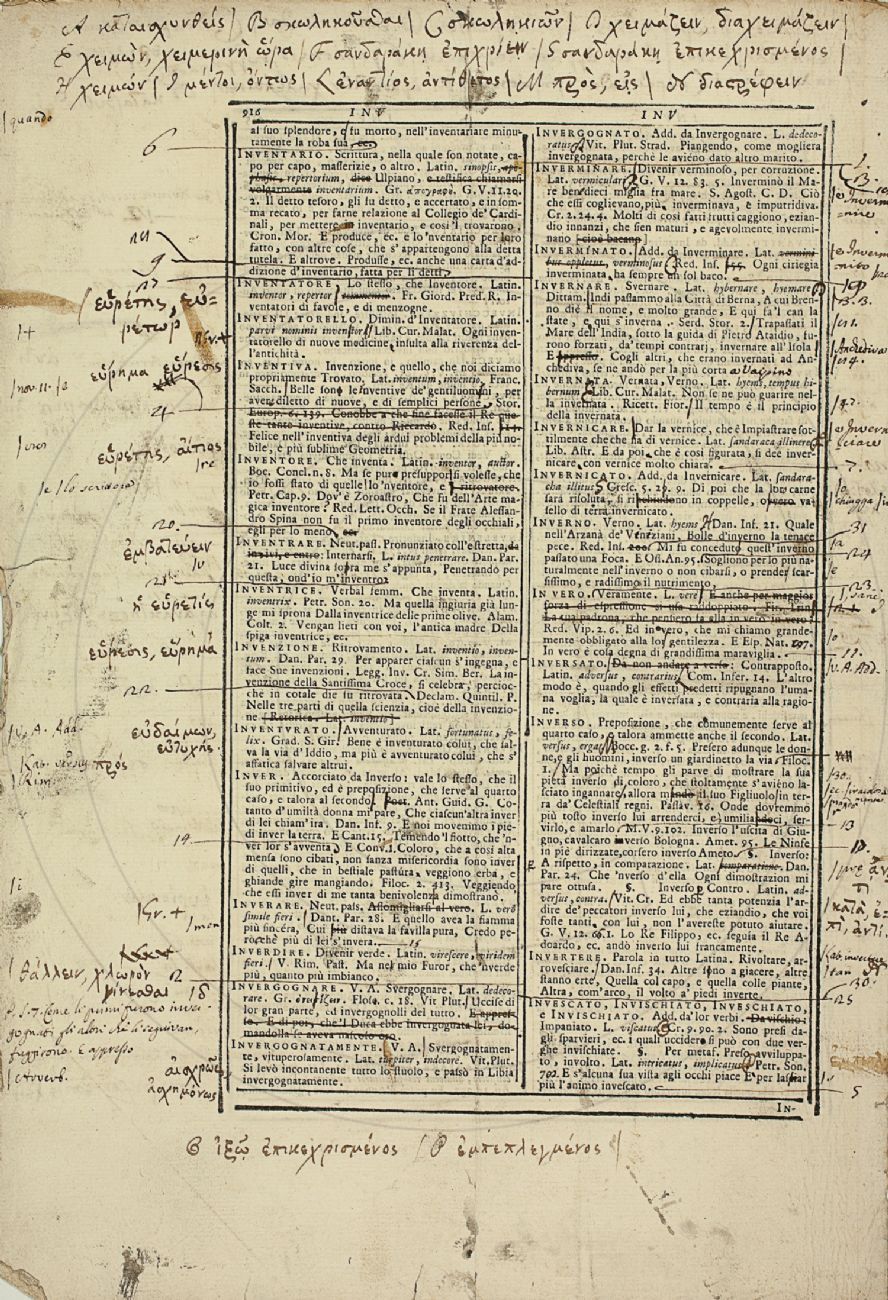 A καταισχυνθείς / B σκωληκοῦσθαι / C σκωληκιῶν / D χειμάζειν, διαχειμάζειν /
E χειμὼν, χειμερινὴ ὥρα / F σανδαράκῃ ἐπιχρίειν / G σανδαράκῃ ἐπικεχρισμένος
H χειμών / I μέντοι, ὄντως / L ἐναντίος, ἀντίθετος / M πρὸς, εἰς /
916 INV INV
quando
al suo splendore, e fu morto, nell'inventariare minu-
tamente la roba sua, ec.
INVENTARIO. Scrittura, nella quale son notate, ca-
po per capo, masserizie, o altro. Latin. sinopsis,
repertorium, dice Ulpiano, e testifica chiamarsi
volgarmente inventarium. Gr. ἀπογραφὸ. G. V. 11. 20.
2. Il detto tesoro, gli fu detto, e accertato, e in som-
ma recato, per farne relazione al Collegio de' Cardi-
nali, per mettere in inventario, e così 'l trovarono.
Cron. Mor. E produce, ec. e lo 'nventario per loro
fatto, con altre cose, che s'appartengono alla detta
tutela. E altrove. Produsse, ec. anche una carta d'ad-
dizione d'inventario, fatta per li detti.
INVENTATORE, Lo stesso, che Inventore. Latin.
inventor, repertor, Fr. Giord. Pred. R. In-
ventatori di favole, e di menzogne.
INVENTATORELLO. Dimin. d'Inventatore. Latin.
parvi nominis inventor. Lib. Cur. Malat. Ogni inven-
tatorello di nuove medicine insulta alla riverenza del-
l'antichità.
INVENTIVA. Invenzione, e quello, che noi diciamo
propriamente Trovato, Lat. inventum, inventio, Franc.
Sacch. Belle sono le inventive de' gentiluomini, per
aver diletto di nuove, e di semplici persone. Stor.
Europ. 6. 139. Conobbe a che fine facesse il Re que-
ste tante inventive, contro Riccardo. Red. Inf.
Felice nell'inventiva degli ardui problemi della più no-
bile, e più sublime Geometria.
INVENTORE. Che inventa. Latin. inventor, auctor.
Boc. Conel. n. 8. Ma se pure presuppor si volesse, che
io fossi stato di quelle lo 'nventore, e 'l ritrovatore.
Petr. Cap. 9. Dov' è Zoroastro, Che fu dell'arte ma-
gica inventore? Red. Lett. Occh. Se il Frate Alessan-
dro Spina non fu il primo inventore degli occhiali,
egli per lo meno, ec.
INVENTRARE. Neut. pass. Pronunziato coll'e stretta, da
in, ivi, e entro: Internarsi, L. intus penetrare. Dan. Par.
21. Luce divina sopra me s'appunta, Penetrando per
questa, ond'io m'inventro.
INVENTRICE. Verbal femm. Che inventa. Latin.
inventrix. Petr. Son. 20. Ma quella ingiuria già lun-
ge mi sprona Dall'inventrice delle prime olive. Alam.
Colt. 2. Vengan lieti con voi, l'antica madre Della
spiga inventrice, ec.
INVENZIONE. Ritrovamento. Lat. inventio, inven-
tum. Dan. Par. 29. Per apparer ciascun s'ingegna, e
face Sue invenzioni. Legg. Inv. Cr. Sim. Ber. La in-
venzione della Santissima Croce, si celebra, percioc-
chè in cotale die fu ritrovata. Declam. Quintil. P.
Nelle tre parti di quella scienzia, cioè della invenzio-
ne [Retorica. Lat. inventio]
INVENTURATO. Avventurato. Lat. fortunatus, fe-
lix. Grad. S. Gir. Bene è inventurato colui, che sal-
va la via d'Iddio, ma più è avventurato colui, che s'
affatica salvare altrui.
INVER. Accorciato da Inverso: vale lo stesso, che il
suo primitivo, ed è preposizione, che serve al quarto
caso, e talora al secondo. Poet. Ant. Guid. G. Co-
tanto d'umiltà donna mi pare, Che ciascun'altra inver
di lei chiam'ira. Dan. Inf. 9. E noi movemmo i pie-
di inver la terra. E Cant. 15. Temendo 'l fiotto, che 'n-
ver lor s'avventa. E Conv. 1. Coloro, che a così alta
mensa sono cibati, non sanza misericordia sono inver
di quelli, che in bestiale pastura, veggiono erba, e
ghiande gire mangiando. Filoc. 2. 413. Veggiendo,
che essi inver di me tanta benivolenza dimostrano.
INVERARE. Neut. pass. Assomigliarsi al vero. L. verò
simile fieri. Dant. Par. 28. E quello avea la fiamma
più sincera, Cui più distava la favilla pura, Credo pe-
rocchè più di lei s'invera.
INVERDIRE. Divenir verde. Latin. virescere, viridem
fieri. V. Rim. Past. Ma nel mio Furor, che 'nverde
più, quanto più imbianco.
INVERGOGNARE. V. A. Svergognare. Lat. dedeco-
rare. Gr. Flos. c. 18. Vit Plut. Uccise di
lor gran parte, ed invergognolli del tutto. E appres-
so. E di poi, che 'l Duca ebbe invergognata lei, do-
mandolla se aveva
INVERGOGNATAMENTE. V. A. Svergognatamen-
te, vituperosamente. Lat. turpiter, indecore. Vit. Plut.
Si levò incontanente tutto lo stuolo, e passò in Libia
invergognatamente.
INVERGOGNATO. Add. da Invergognare. L. dedeco-
ratus. Vit. Plut. Strad. Piangendo, come mogliera
invergognata, perchè le avieno dato altro marito.
INVERMINARE. Divenir verminoso, per corruzione.
Lat. vermiculari. G. V. 12. 83. 5. Inverminò il Ma-
re ben dieci miglia fra mare. S. Agost. C. D. Ciò
che essi coglievano, più inverminava, e imputridiva.
Cr. 2. 24. 4. Molti di così fatti frutti caggiono, ezian-
dio innanzi, che sien maturi, e agevolmente invermi-
nano [cioè bacano]
INVERMINATO. Add. da Inverminare. Lat.
verminosus. Red. Inf. 155. Ogni ciriegia
inverminata, ha sempre un sol baco.
INVERNARE. Svernare. Lat. hybernare, hyemare.
Dittam. Indi passammo alla Città di Berna, A cui Bren-
no diè il nome, e molto grande, E qui fa 'l can la
state, e qui s'inverna. Serd. Stor. 2. Trapassati il
Mare dell'India, sotto la guida di Pietro Ataidio, fu-
rono forzati, da' tempi contrarj, invernare all'Isola
E appresso. Cogli altri, che erano invernati ad An-
chediva, se ne andò per la più corta a Vaipino
INVERNATA. Vernata, Verno. Lat. hyems, tempus hi-
bernum. Lib. Cur. Malat. Non se ne può guarire nel-
la invernata. Ricett. Fior. Il tempo è il principio
della invernata.
INVERNICARE. Dar la vernice, che è Impiastrare sot-
tilmente che che sia di vernice. Lat. sandaraca illinere.
Lib. Astr. E da poi, che è così figurata, si dee inver-
nicare, con vernice molto chiara.
INVERNICATO. Add. da Invernicare. Lat. sandara-
cha illitus. Cresc. 5. 28. 9. Di poi che la lor carne
sarà risoluta, si richiudono in coppelle, o vero va-
sello di terra invernicato.
INVERNO. Verno. Lat. hyems. Dan. Inf. 21. Quale
nell'Arzanà de' Veneziani, Bolle d'inverno la tenace
pece. Red. Inf. 200. Mi fu conceduto quest'inverno
passato una Foca. E Oss. An. 95. Sogliono per lo più na-
turalmente nell'inverno o non cibarsi, o prender scar-
sissimo, e radissimo il nutrimento.
IN VERO. Veramente. L. verè. E anche per maggior
forza di espressione si usa raddoppiato. Fir. Luc.
La sua padrona, che pensero fa alla in vero in vero?
Red. Vip. 2. 6. Ed in vero, che mi chiamo grande-
mente obbligato alla lor gentilezza. E Esp. Nat. 107.
In vero è cosa degna di grandissima maraviglia.
INVERSATO. Da non andare a verso: Contrapposto.
Latin. adversus, contrarius. Com. Infer. 14. L'altro
modo è, quando gli effetti predetti ripugnano l'uma-
na voglia, la quale è inversata, e contraria alla ragio-
ne.
INVERSO. Preposizione, che comunemente serve al
quarto caso, e talora ammette anche il secondo. Lat.
versus, erga. Bocc. g. 2. f. 5. Presero adunque le don-
ne, e gli huomini, inverso un giardinetto la via. Filoc.
1. Ma poichè tempo gli parve di mostrare la sua
pietà inverso di coloro, che stoltamente s'avièno la-
sciato ingannare, allora mandò il suo Figliuolo in ter-
ra da' Celestiali regni. Passav. 16. Onde dovremmo
più tosto inverso lui arrenderci, e umiliandoci, ser-
virlo, e amarlo. M. V. 9. 102. Inverso l'uscita di Giu-
gno, cavalcaro inverso Bologna. Amet. 95. Le Ninfe
in piè dirizzate, corsero inverso Ameto. §. Inverso:
A rispetto, in comparazione. Lat. comparatione. Dan.
Par. 24. Che 'nverso d'ella Ogni dimostrazion mi
pare ottusa. §. Inverso, Contro. Latin. ad-
versus, contra. Vit. Cr. Ed ebbe tanta potenzia l'ar-
dire de' peccatori inverso lui, che eziandio, che voi
foste tanti, con lui, non l'avereste potuto aiutare.
G. V. 12. 66. 1. Lo Re Filippo, ec. seguìa il Re A-
doardo, ec. andò inverso lui francamente.
INVERTERE. Parola in tutto Latina. Rivoltare, ar-
rovesciare. Dan. Inf. 34. Altre sono a giacere, altre
stanno erte, Quella col capo, e quella colle piante,
Altra, com'arco, il volto a' piedi inverte.
INVESCATO, INVISCHIATO, INVESCHIATO,
e INVISCATO. Add. da' lor verbi. Da vischio:
Impaniato. L. viscatus. Cr. 9. 90. 2. Sono presi da-
gli sparvieri, ec. i quali uccidere si può con due ver-
ghe invischiate. §. Per metaf. Preso, avviluppa-
to, involto. Lat. intricatus, implicatus. Petr. Son.
702. E s'alcuna sua vista agli occhi piace E per lasciar
più l'animo invescato.
IN-
εὑρέτης, εὑ-
ρέτωρ
εὕρημα εὕρεσις
εὑρέτης, αἴτιος
ἐμβατεύειν
ἡ εὑρετίς
εὕρεσις, εὕρημα
εὐδαίμων,
εὐτυχής.
πρός
θάλλειν, χλωρὸν
γίνεσθαι
αἰσχρῶς
ἀσχημόνως
ἰξῷ ἐπικεχρισμένος / ἐμπεπλεγμένος /